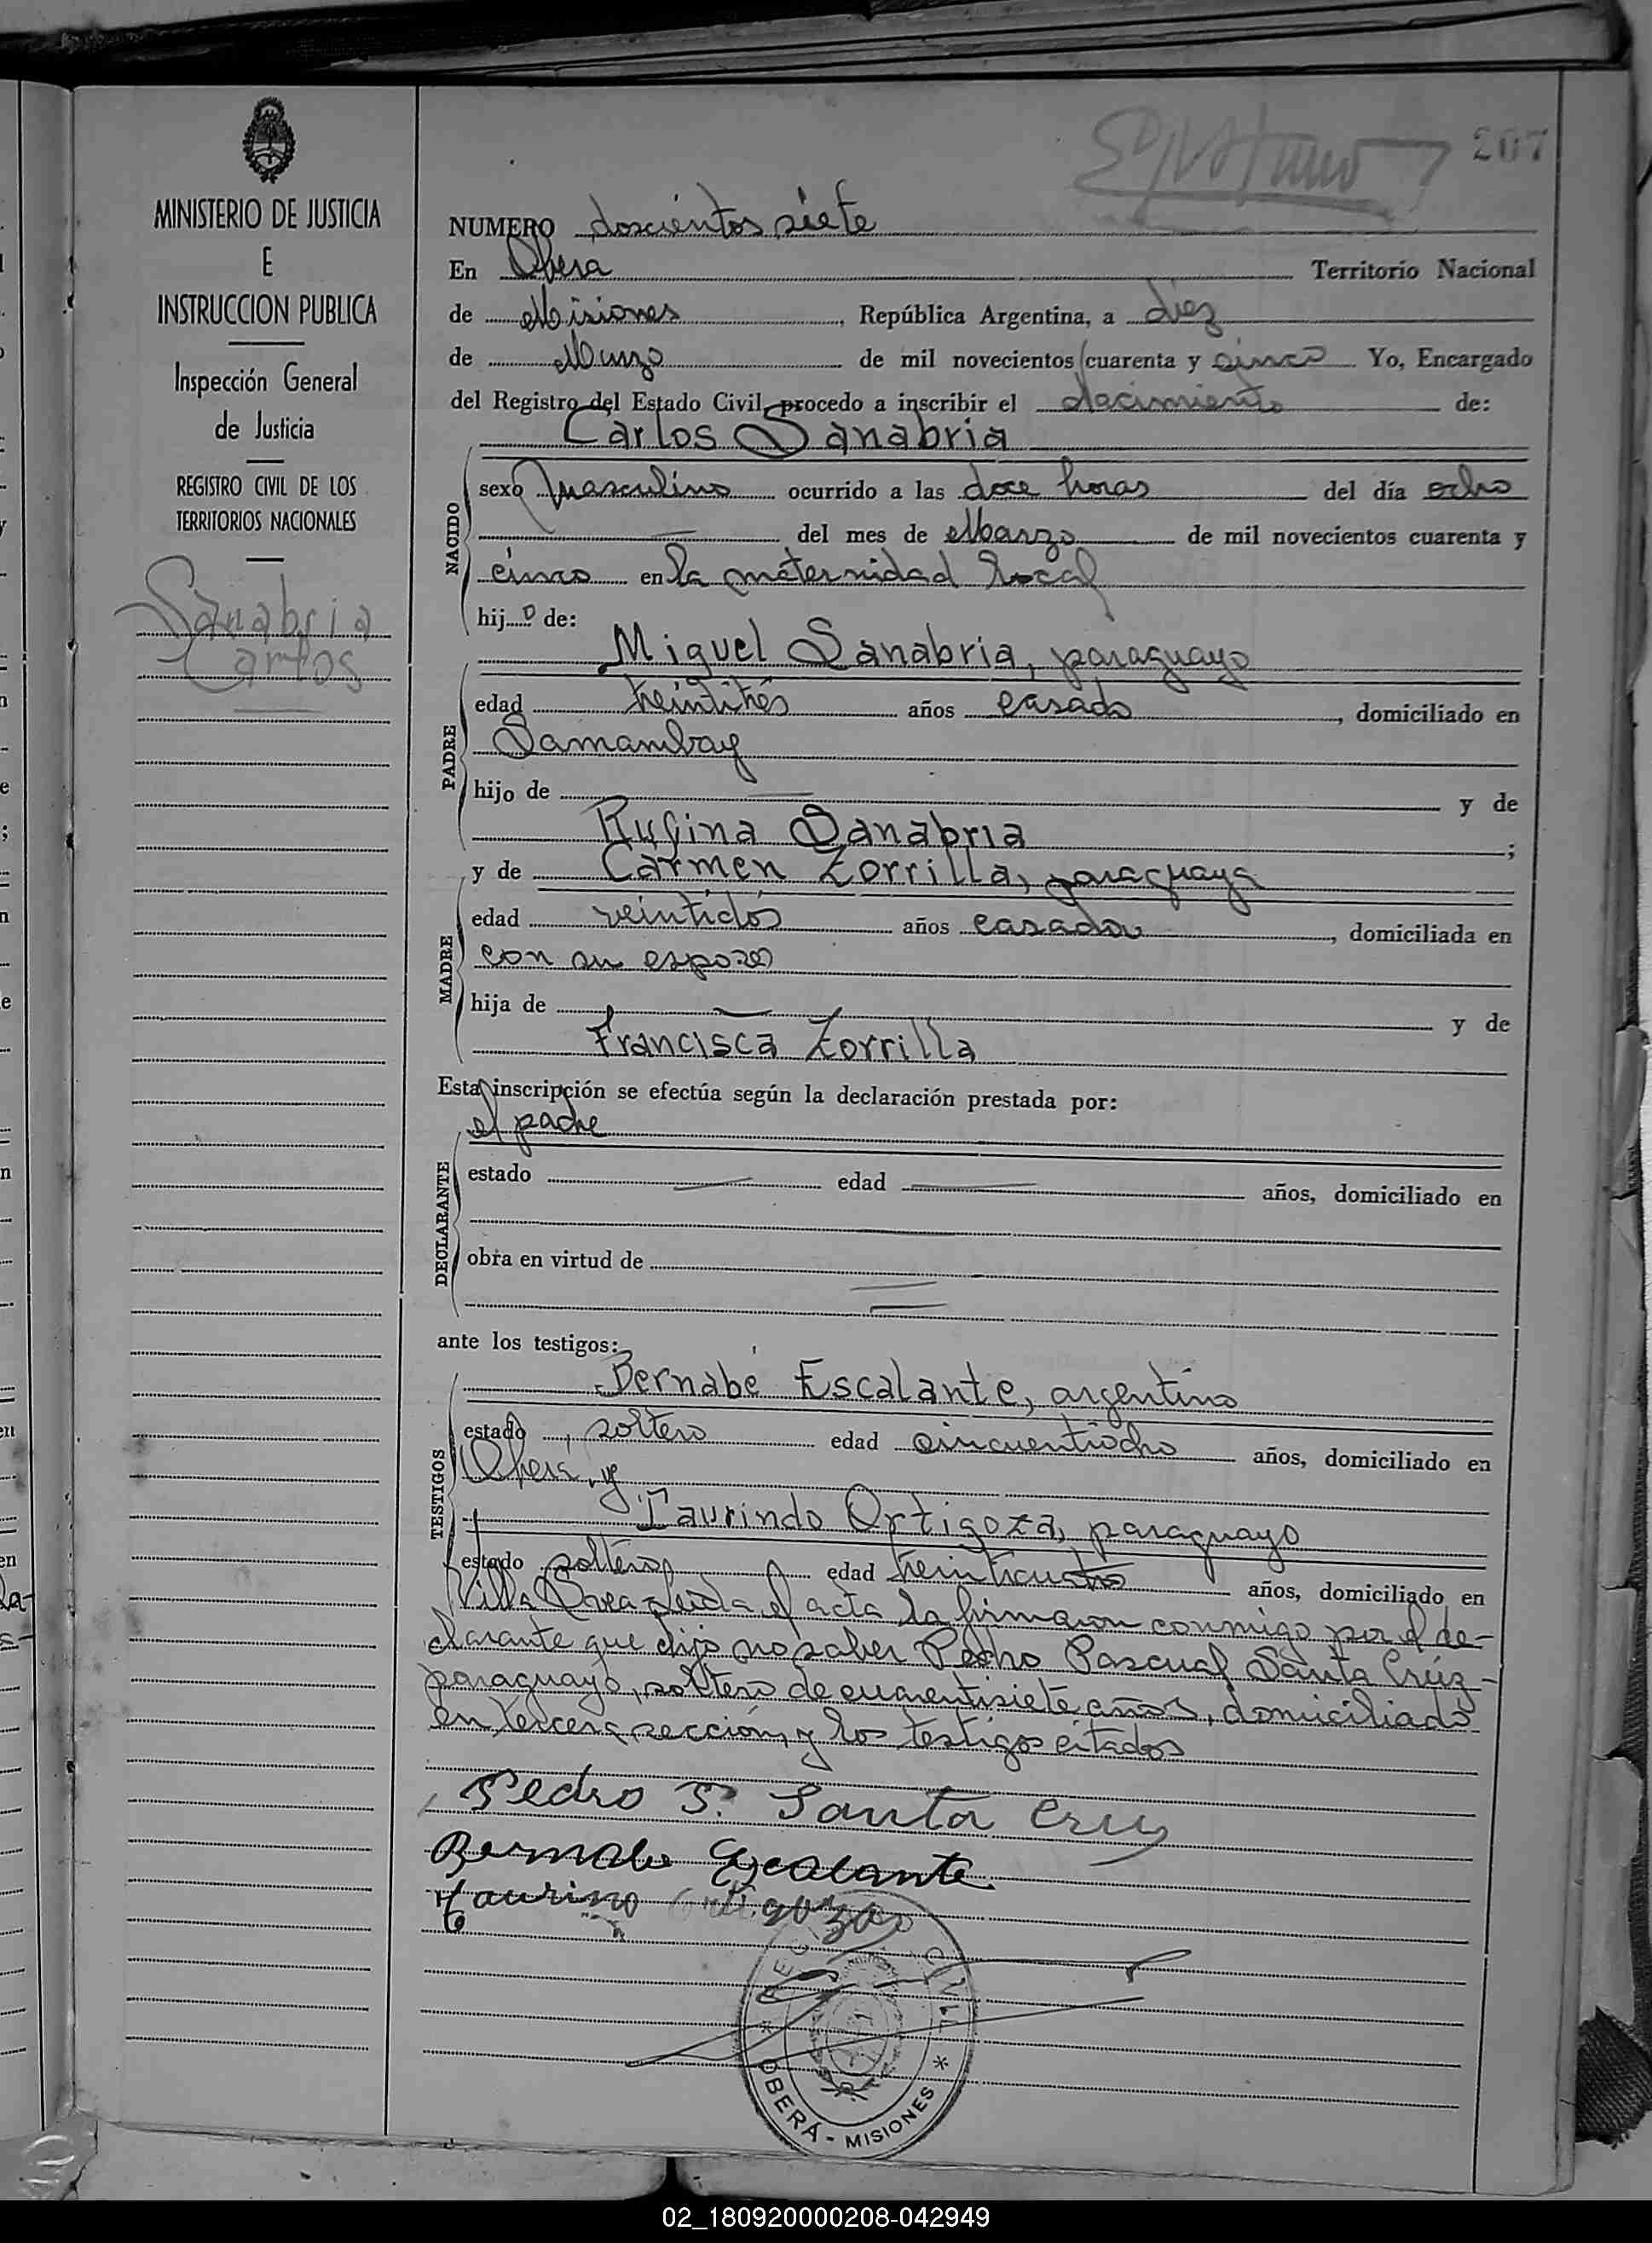 207
MINISTERIO DE JUSTICIA
E
INSTRUCCION PUBLICA
Inspección General
de Justicia
REGISTRO CIVIL DE LOS
TERRITORIOS NACIONALES
Sanabria
Carlos
NUMERO doscientos siete
En Oberá Territorio Nacional
de Misiones, República Argentina, a diez
de Marzo de mil novecientos cuarenta y cinco Yo, Encargado
del Registro del Estado Civil, procedo a inscribir el nacimiento de:
Carlos Sanabria
NACIDO
sexo masculino ocurrido a las doce horas del día ocho
del mes de Marzo de mil novecientos cuarenta y
cinco en la maternidad local
hijo de:
Miguel Sanabria, paraguayo
PADRE
edad treintitrés años casado, domiciliado en
Samambay
hijo de y de
Rufina Sanabria ;
y de Carmen Zorrilla, paraguaya
MADRE
edad veintidós años casada, domiciliada en
con su esposo
hija de y de
Francisca Zorrilla
Esta inscripción se efectúa según la declaración prestada por:
el padre
DECLARANTE
estado edad años, domiciliado en
obra en virtud de
ante los testigos:
Bernabé Escalante, argentino
TESTIGOS
estado, soltero edad cincuentiocho años, domiciliado en
Oberá, y
Taurindo Ortigoza, paraguayo
estado soltero edad treinticuatro años, domiciliado en
Villa leida el acta la firmaron conmigo por el de-
clarante que dijo no saber Pedro Pascual Santa Crúz-
paraguayo, soltero de cuarentisiete años, domiciliado
en tercera sección, y los testigos citados
Pedro P. Santa Cruz
Bernabe Escalante
Taurino Ortigoza
REG CIVIL
* OBERÁ - MISIONES *
02_180920000208-042949